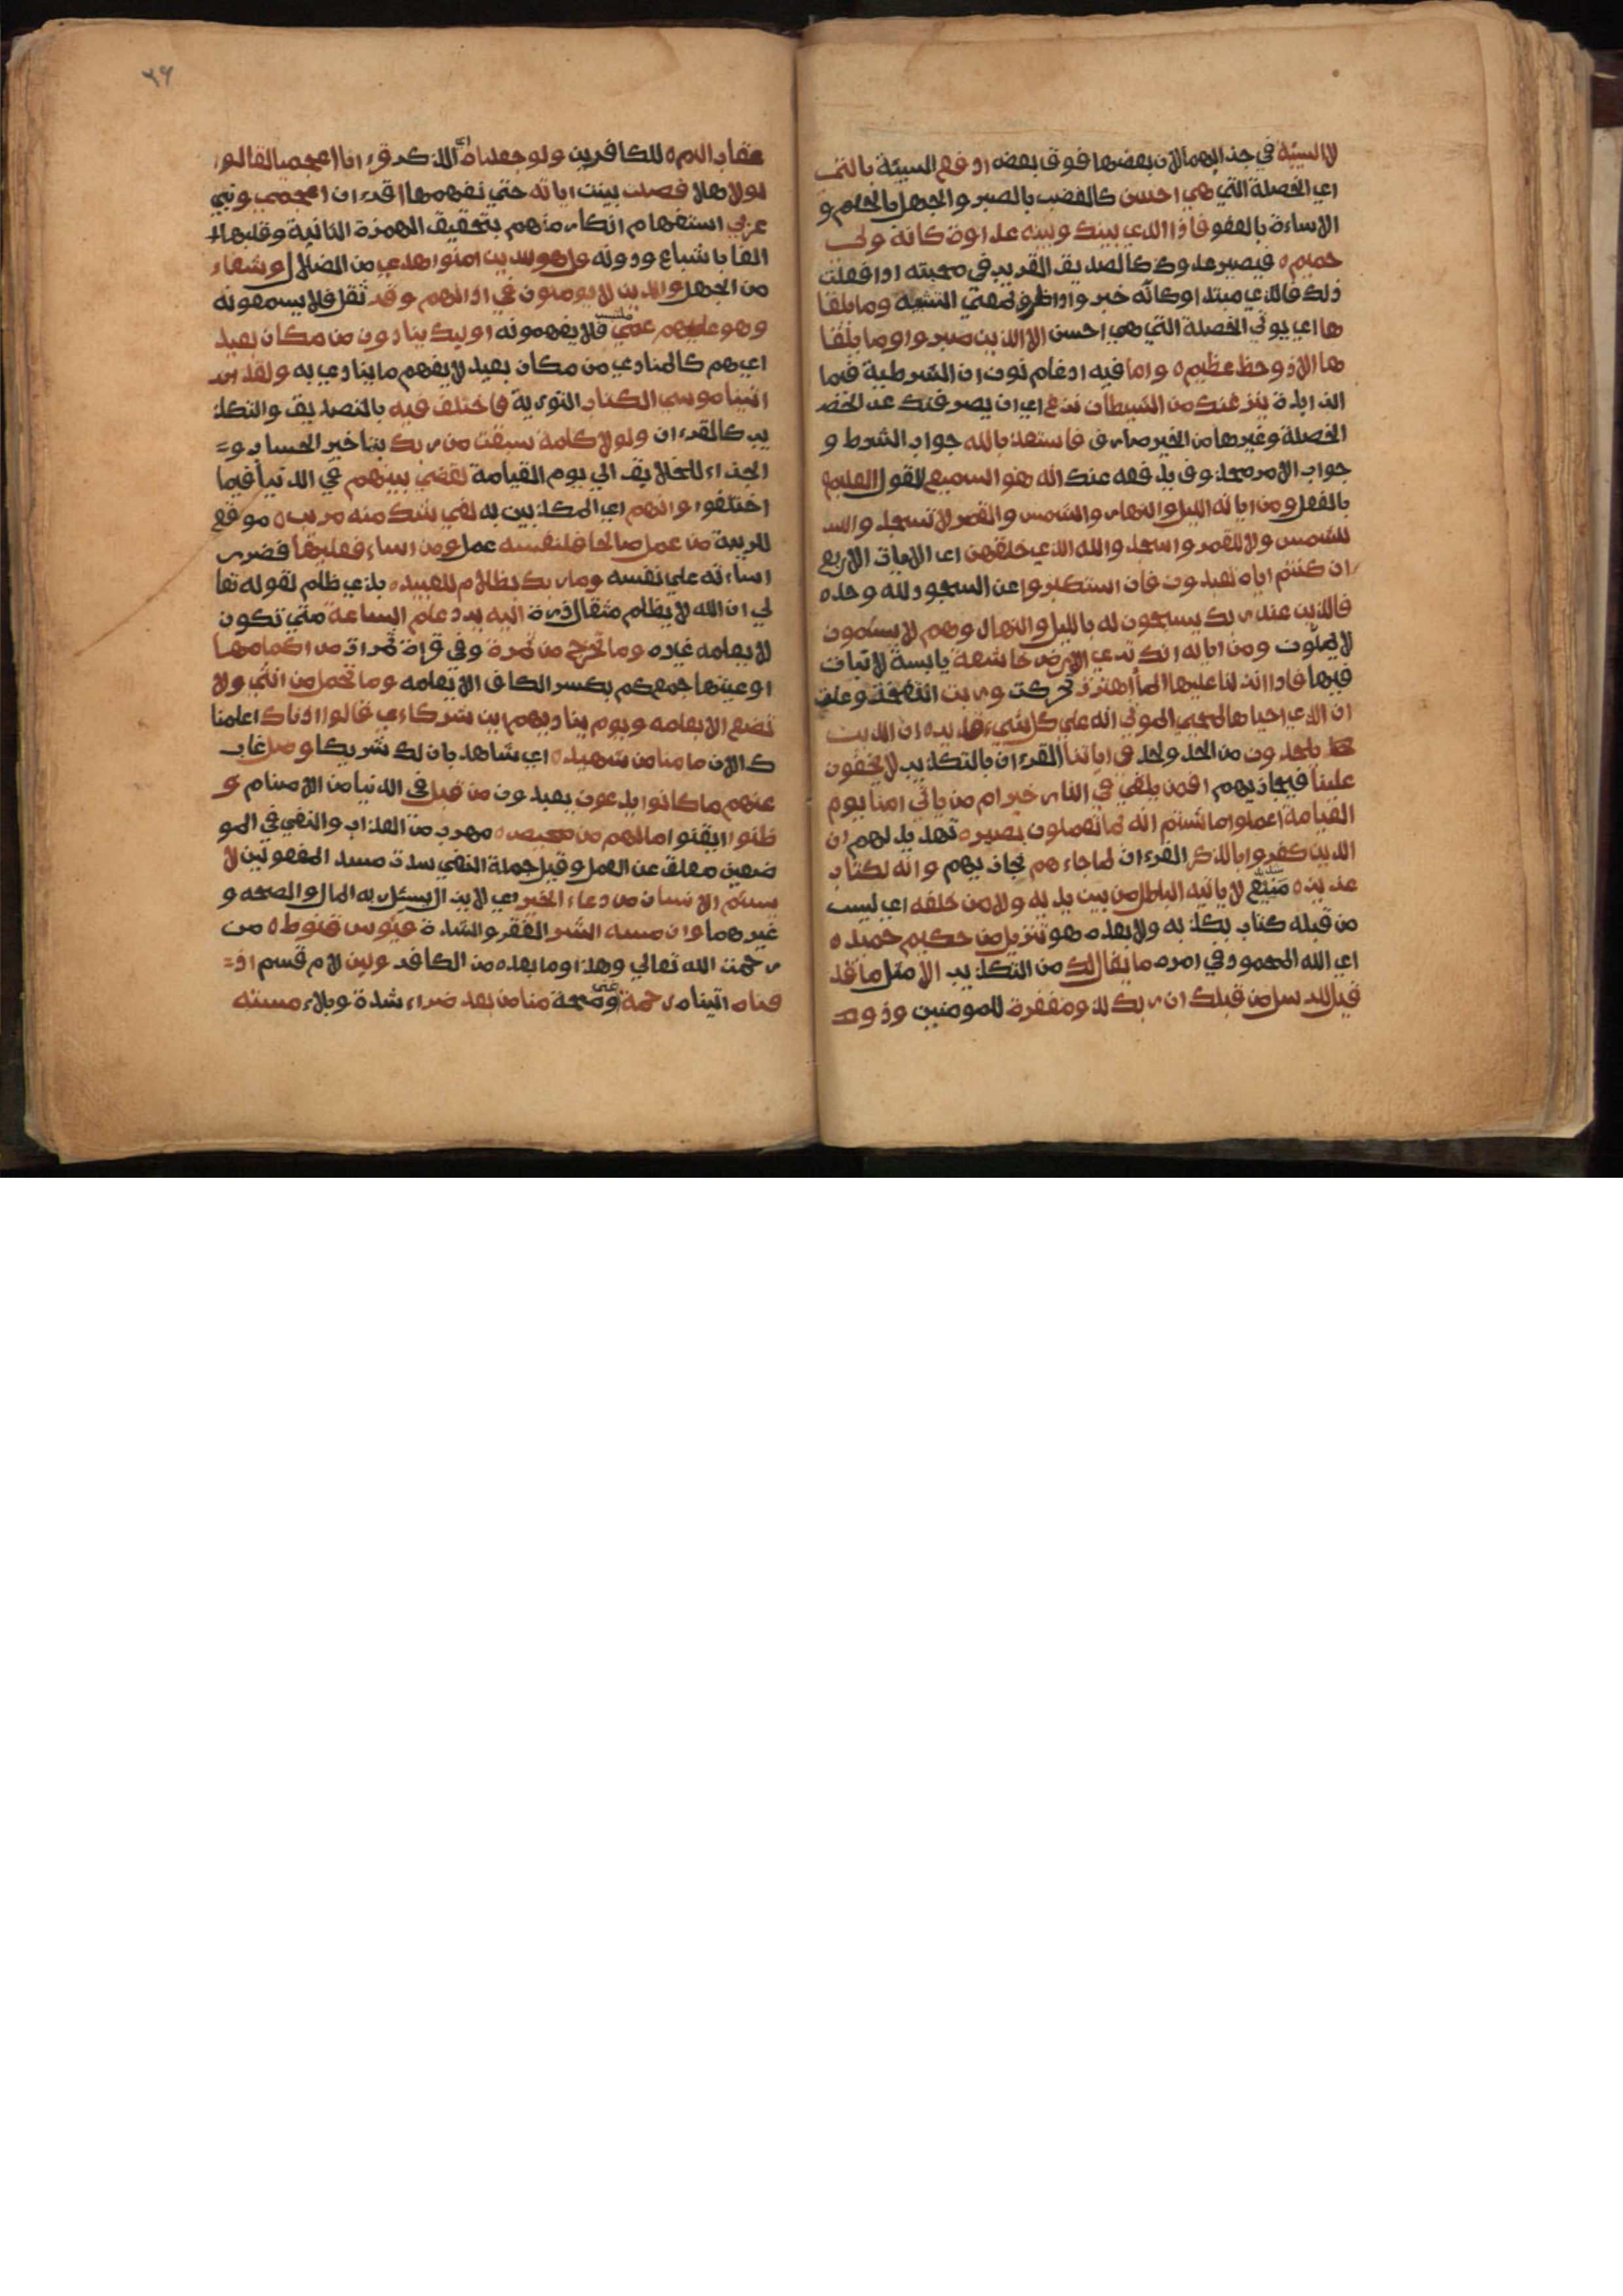 لا السيئة في جذايهما لان بعضها فوق بعضه ادفع السيئة بالتي
اي الخصلة التي هي احسن كالغضب بالصبر والجهل بالحلم و
الاساءة بالعفو فاذا الذي بينك وبينه عداوة كانه ولي
حميم ه فيصير عدوك كالصديق القريب في محبته اذا فعلت
ذلك فالذي مبتدا وكانه خبر واذا ظرف لمعني التشبه وما يلقا
ها اي يوتي الخصلة التي هي احسن الا الذين صبروا وما يلقا
ها الا ذو حظ عظيم ه واما فيه ادغام نون ان الشرطية فيما
الذايدة ينزغنك من الشيطان نزغ اي ان يصرفنك عن الخصـ
الخصلة وغيرها من الخير صارف فاستعذ بالله جواب الشرط و
جواب الامر محذوف يدفعه عنك انه هو السميع للقول العليم
بالفعل ومن اياته الليل والنهار والشمس والقمر لا تسجدوا
للشمس ولا للقمر واسجدوا لله الذي خلقهن اي الايات الاربع
ان كنتم اياه تعبدون فان استكبروا عن السجود لله وحده
فالذين عند ربك يسبحون له بالليل والنهار وهم لا يسئمون
لا يملون ومن اياته انك تري الارض خاشعة يابسة لا نبات
فيها فاذا انزلنا عليها الما اهتزت تحركت وربت انتفخت وعلت
ان الذي احياها لمحيي الموتي انه علي كل شيء قدير ه ان الذين
يلحدون من الحد ولحد في اياتنا القرءان بالتكذيب لا يخفون
علينا فيجازيهم افمن يلقي في النار خير ام من ياتي امنا يوم
القيامة اعملوا ما شئتم انه بما تعملون بصير ه تهديد لهم ان
الذين كفروا بالذكر القرءان لما جاءهم نجازيهم وانه لكتاب
عزيز ه منيع لا ياتيه الباطل من بين يديه ولا من خلفه اي ليس
من قبله كتاب يكذبه ولا بعده هو تنزيل من حكيم حميد ه
اي الله المحمود في امره ما يقال لك من التكذيب الا مثل ما قد
قيل للرسل من قبلك ان ربك لذو مغفرة للمومنين وذو
٣٦
عقاب اليم ه للكافرين ولو جعلناه اي الذكر قرءانا اعجميا لقالوا
لولا هلا فصلت بينت اياته حتي نفهمها اقرءان اعجمي ونبي
عربي استفهام انكار منهم بتحقيق الهمزة الثانية وقلبها
الفا باشباع ودونه قل هو للذين امنوا هدي من الضلال وشفاء
من الجهل والذين لا يومنون في اذانهم وقر ثقل فلا يسمعونه
وهو عليهم عمي فلا يفهمونه اوليك ينادون من مكان بعيد
اي هم كالمنادي من مكان بعيد لا يفهم ما ينادي به ولقد
اتينا موسي الكتاب التورية فاختلف فيه بالتصديق والتكذ
يب كالقرءان ولولا كلمة سبقت من ربك بتاخير الحساب و=
الجذاء للخلايق الي يوم القيامة لقضي بينهم في الدنيا فيما
اختلفوا وانهم اي المكذبين به لفي شك منه مريب ه موقع
للريبة من عمل صالحا فلنفسه عمل ومن اساء فعليها فضرر
اساءته علي نفسه وما ربك بظلام للعبيد ه بذي ظلم لقوله تعا
لي ان الله لا يظلم مثقال ذرة اليه يرد علم الساعة متي تكون
لا يعلمه غيره وما تخرج من ثمرة وفي قراة ثمرات من اكمامها
اوعيتها جمع كم بكسر الكاف الا بعلمه وما تحمل من انثي ولا
تضع الا بعلمه ويوم يناديهم اين شركاءي قالوا اذناك اعلمنا
ك الان ما منا من شهيد ه اي شاهد بان لك شريكا وضل غاب
عنهم ما كانوا يدعون يعبدون من قبل في الدنيا من الاصنام و
ظنوا ايقنوا ما لهم من محيص ه مهرب من العذاب والنفي في المو
ضعين معلق عن العمل وقيل جملة النفي سدت مسد المفعولين لا
يسئم الانسان من دعاء الخير اي لا يزال يسئل ربه المال والصحه و
غيرهما وان مسه الشر الفقر والشدة فيئوس قنوط ه من
رحمت الله تعالي وهذا وما بعده من الكافر ولين لام قسم اذ=
قناه اتيناه رحمة غني وصحة منا من بعد ضراء شدة وبلاء مسته